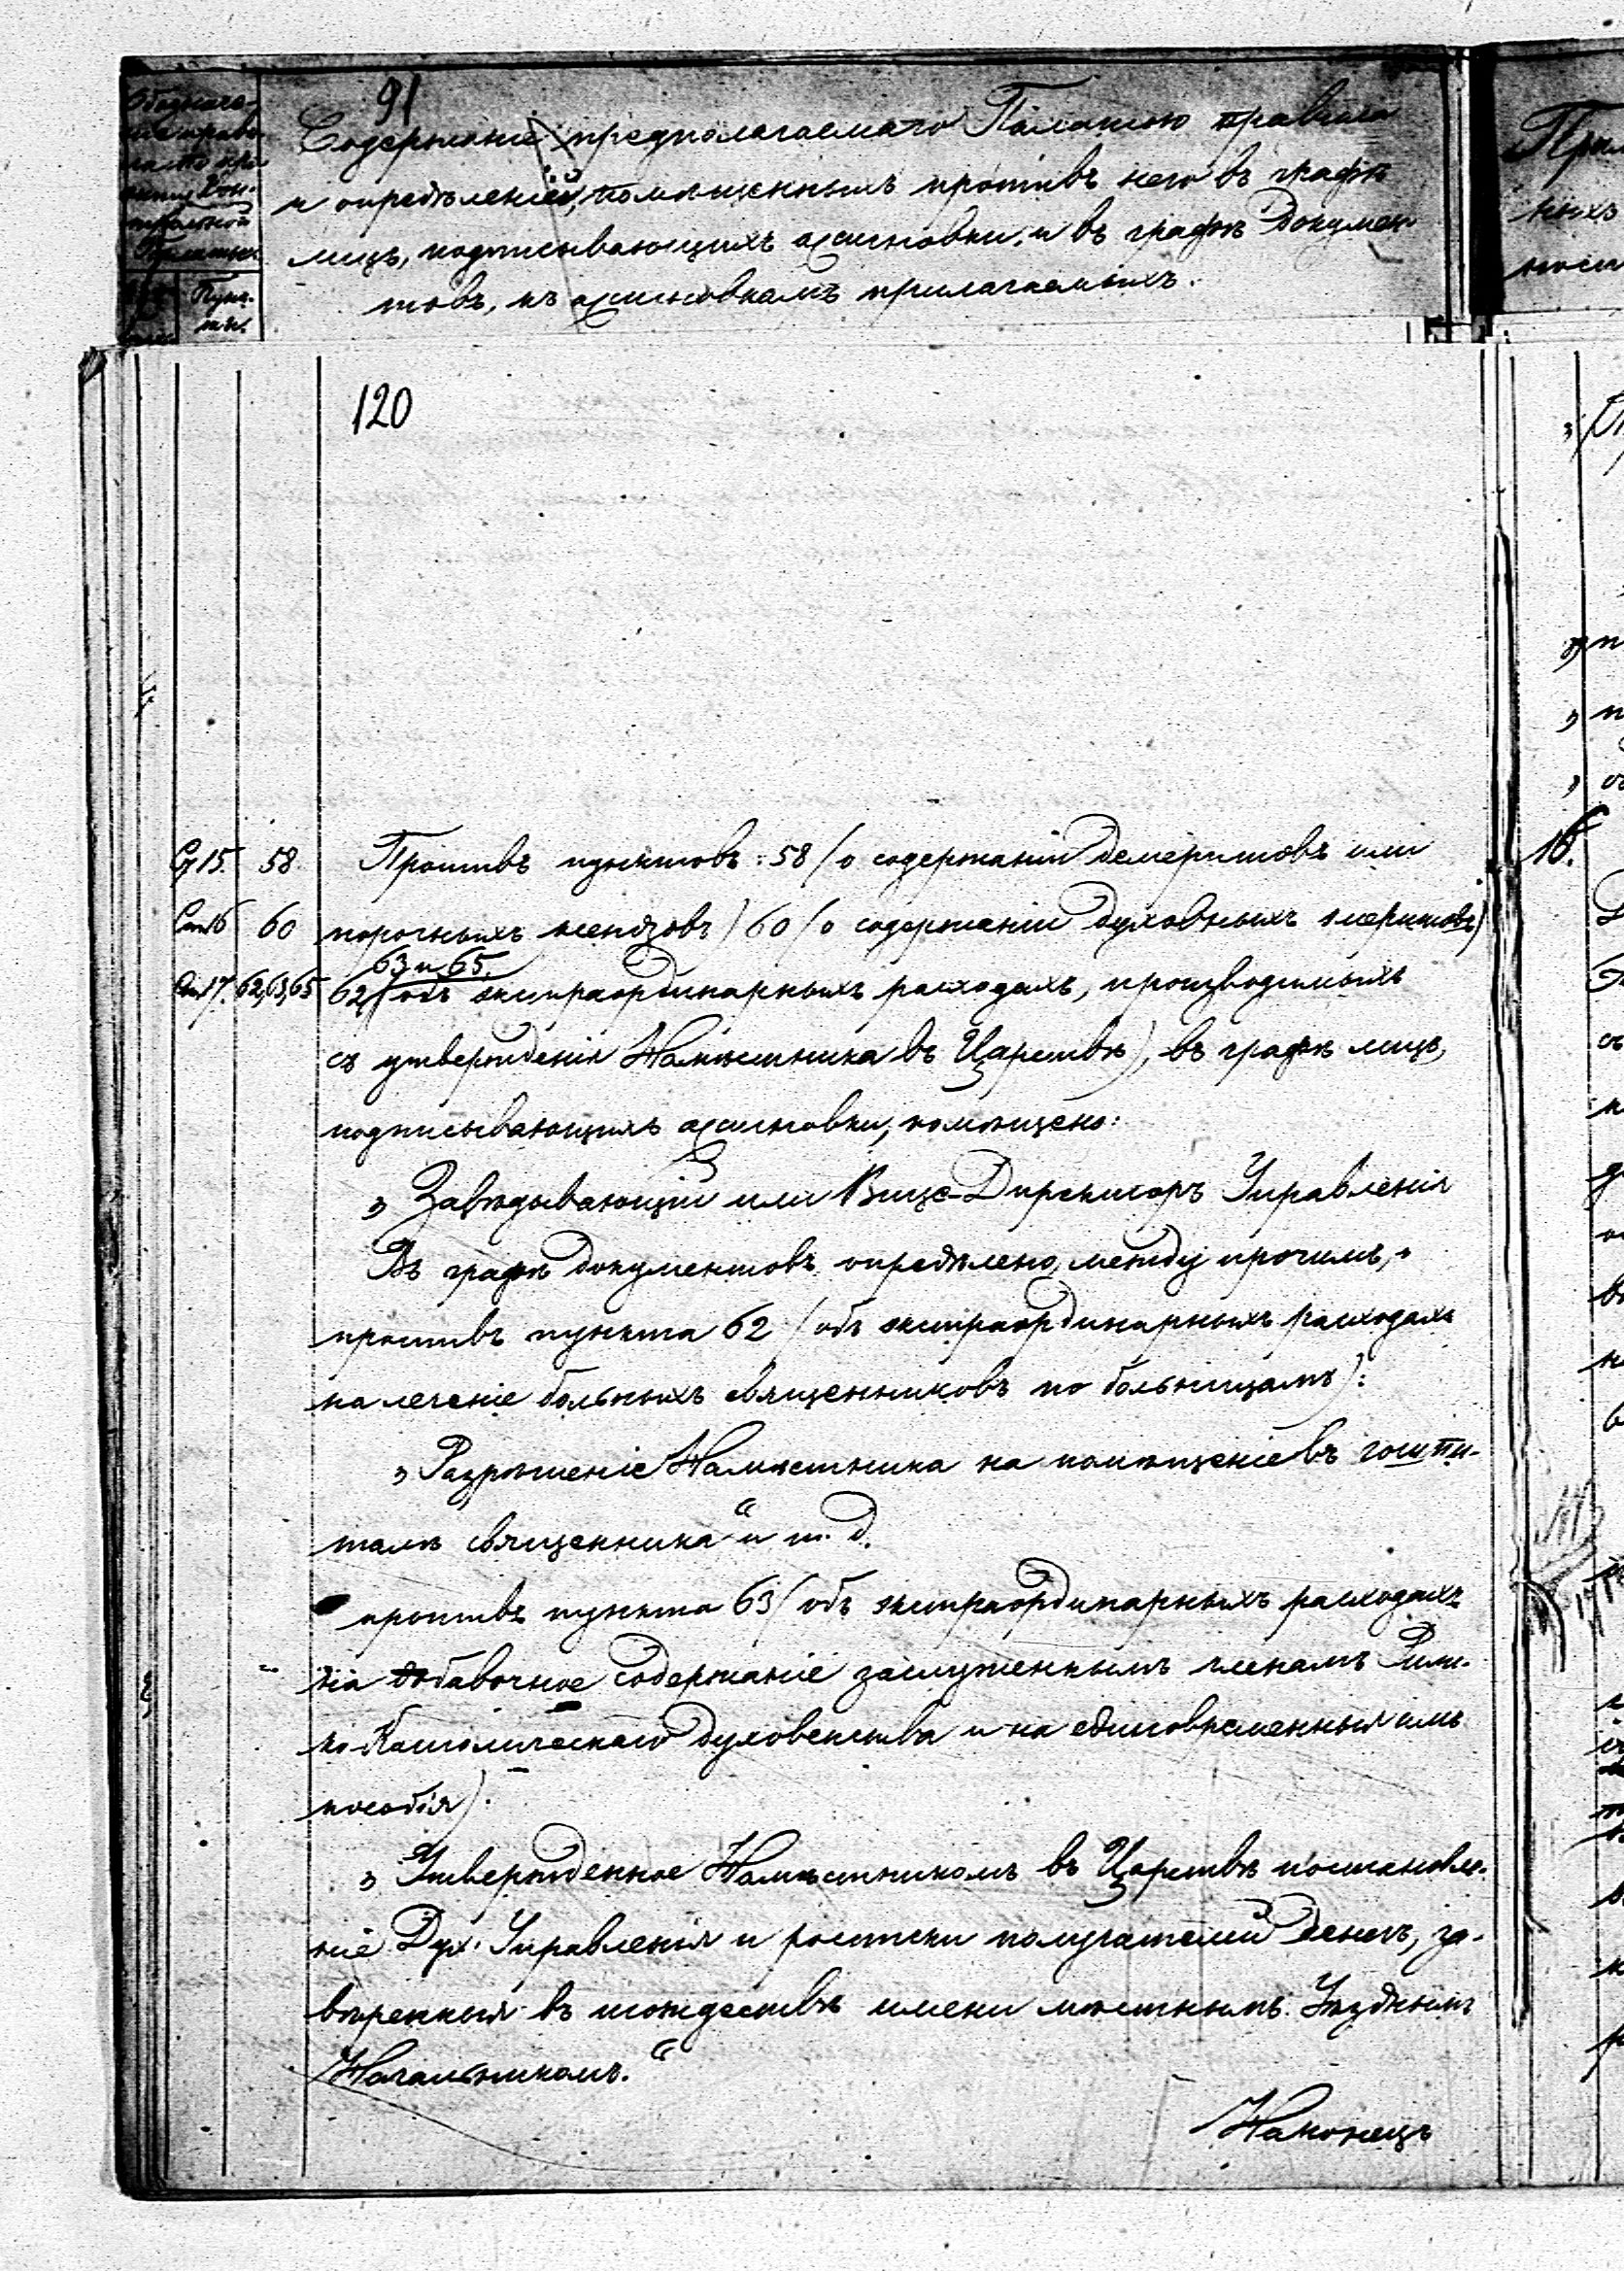 Обозначе-
ніе прави-
ла по про-
екту Кон-
трольной
Палаты.
Пунк-
ты.
91
Содержаніе предполагаемаго Палатою правила
и опредѣленій, помѣщенныхъ противъ него въ графѣ
лицъ, подписывающихъ ассигновки, и въ графѣ докумен-
товъ, къ ассигновкамъ прилагаемыхъ.
120
Ст 15. 58. Противъ пунктовъ: 58 (о содержаніи демеритовъ или
Ст 16 60 порочныхъ ксендзовъ) 60 (о содержаніи духовныхъ эмеритовъ)
63 и 65.
Ст. 17. 62, 63, 65 62 (объ экстраординарныхъ расходахъ, производимыхъ
съ утвержденія Намѣстника въ Царствѣ), въ графѣ лицъ,
подписывающихъ ассигновки, помѣщено:
„ Завѣдывающій или Вице-Директоръ Управленія
Въ графѣ документовъ опредѣлено, между прочимъ,
противъ пункта 62 (объ экстраординарныхъ расходахъ
на леченіе больныхъ священниковъ по больницамъ):
„ Разрѣшеніе Намѣстника на помѣщеніе въ госпи-
таль священника“ и т. д.
противъ пункта 63 (объ экстраординарныхъ расходахъ
на добавочное содержаніе заслуженнымъ членамъ Рим-
ко-Католическаго духовенства и на единовременныя имъ
пособія).
„ Утвержденное Намѣстникомъ въ Царствѣ постановле-
ніе Дух. Управленія и росписки получателей денегъ, за-
вѣренныя въ тождествѣ имени мѣстнымъ Уѣзднымъ
Начальникомъ.“
Наконецъ
16.